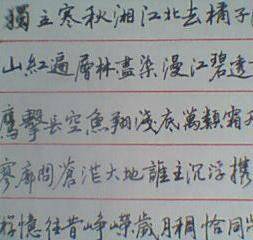 獨立寒秋湘江北去橘子
山紅遍層林盡染漫江碧透
鷹擊長空魚翔淺底萬類霜天
寥廓問蒼茫大地誰主沉浮携
憶往昔崢嶸歲月稠恰同